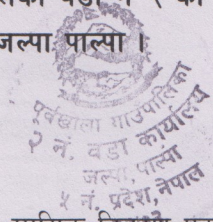 जल्पा पाल्पा ।
पूर्वखोला गाउँपालिका
२ नं. वडा कार्यालय
जल्पा, पाल्पा
५ नं. प्रदेश, नेपाल